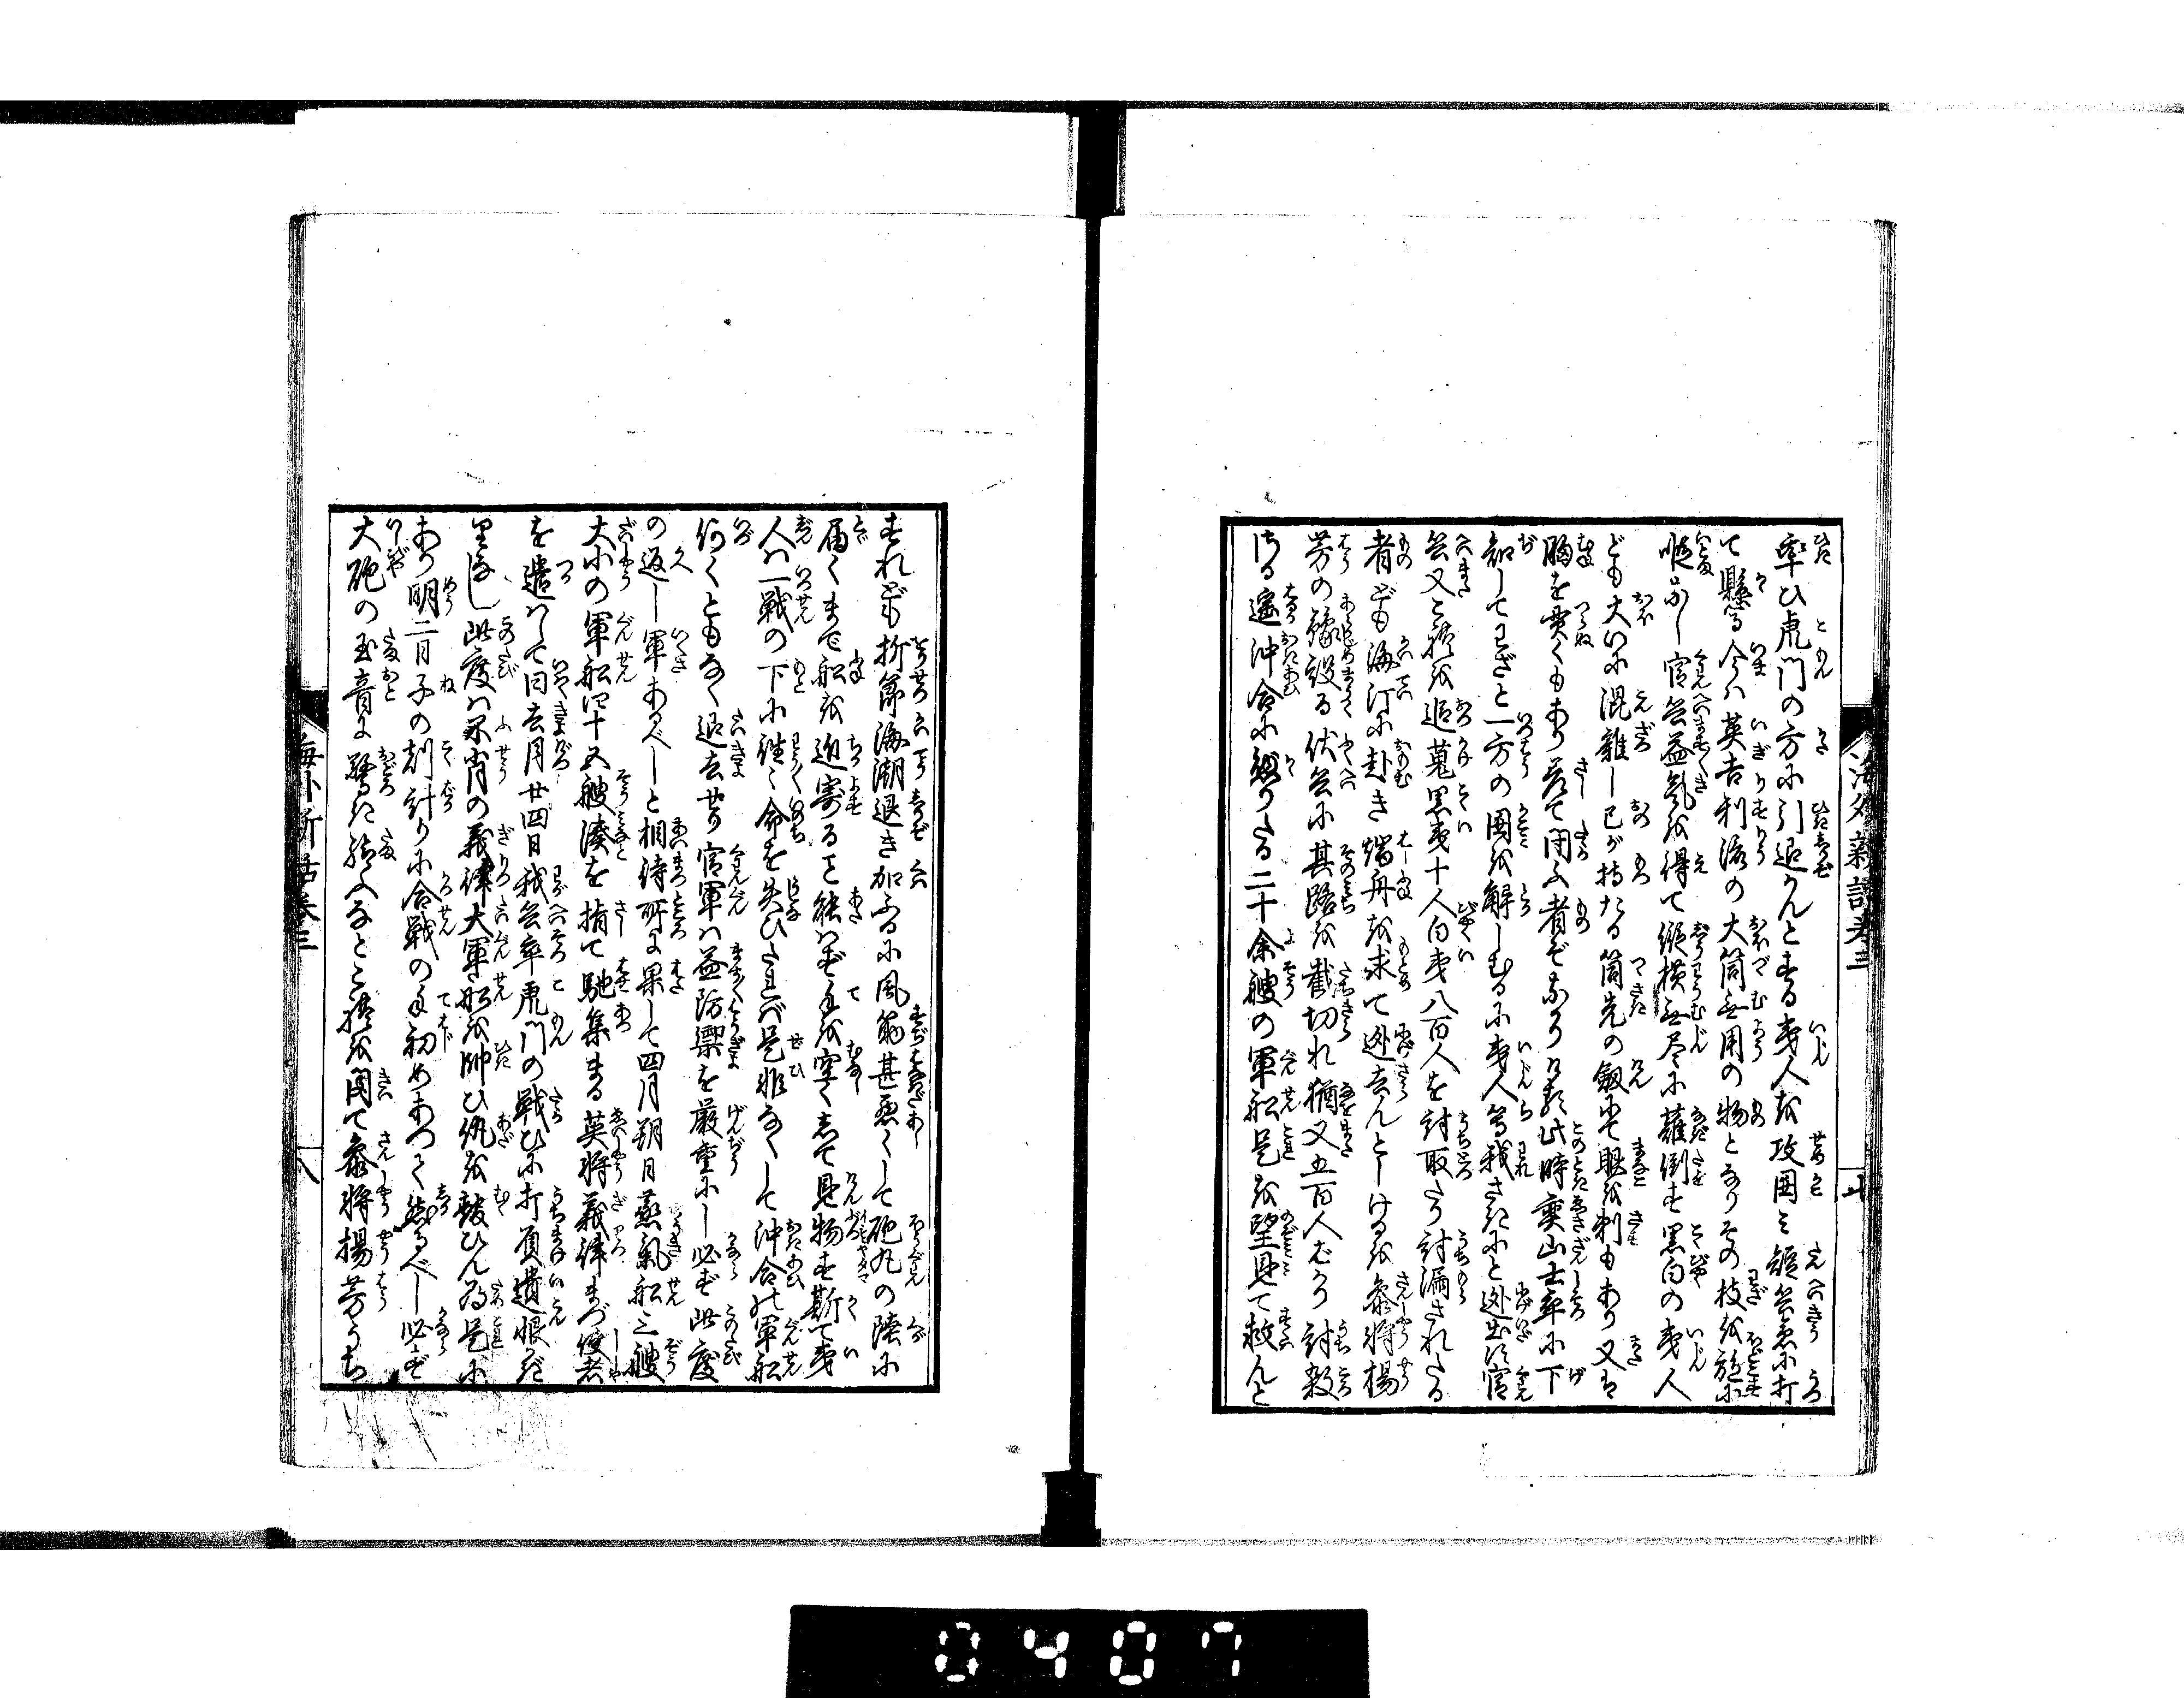 海外新話巻三
率ひ虎門の方に引退かんとする夷人を攻囲み短兵急に打
て懸る今ハ英吉利流の大筒無用の物となりその技を施に
暇なし官兵益気を得て縦横無尽に薙倒す黒白の夷人
ども大いに混雑し己が持たる筒先の釼にて眼を刺もあり又は
胸を貫くもあり差て闘ふ者ぞなかりける此時奕山士卒に下
知してわざと一方の囲を解しむるに夷人等我さきにと逃出す官
兵又これを追蒐黒夷十人白夷八百人を討取たり討漏されたる
者ども海汀に赴き端舟を求て逃去んとしけるを参将楊
芳の豫設る伏兵に其路を截切れ猶又五百人ばかり討殺
さる遥沖合に懸りたる二十余艘の軍船是を望見て救んと
すれども折節海潮退き加ふるに風筋甚悪くして砲丸の陸に
届くまで船を迫寄ること能ハず手を空くして見物す斯て夷
人ハ一戦の下に徃々命を失ひたれバ是非なくして沖合の軍船
何くともなく退去せり官軍ハ益防禦を厳重にし必ず此度
の返し軍あるべしと相待所に果して四月朔日蒸気船三艘
大小の軍船四十五艘湊を指て馳集まる英将義律まづ使者
を遣ハして曰去月廿四日我兵卒虎門の戦ひに打負遺恨
此度ハ不肖の義律大軍船を帥ひ仇を報ひん為是に
あり明二月子の刻計りに合戦の手初めあつて然るべし必ず
大砲の玉音に驚き給ふなとこれを聞て参将楊芳うち
海外新話巻三
八